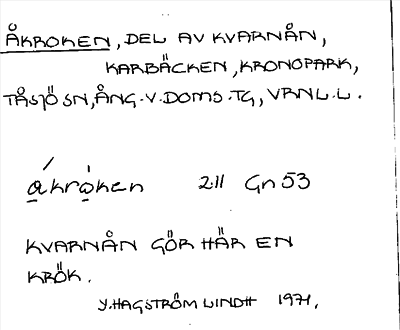 ÅKROKEN, DEL AV KVARNÅN,
KARBÄCKEN, KRONOPARK,
TÅSJÖ SN, ÅNG.V.DOMS.TG, VRNL.L.
åkroken 211 Gn 53
KVARNÅN GÖR HÄR EN
KRÖK.
Y.HAGSTRÖM LINDH 1971.